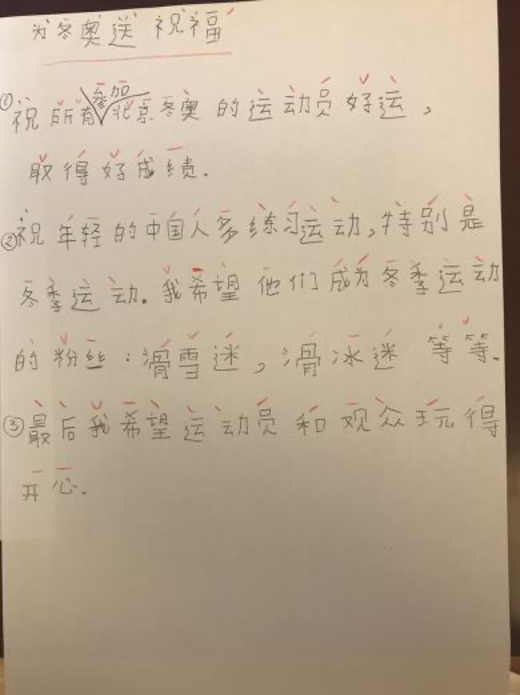 为冬奥送祝福
①祝所有参加北京冬奥的运动员好运，
取得好成绩.
②祝年轻的中国人多练习运动,特别是
冬季运动.我希望他们成为冬季运动
的粉丝:滑雪迷,滑冰迷 等等.
③最后我希望运动员和观众玩得
开心.